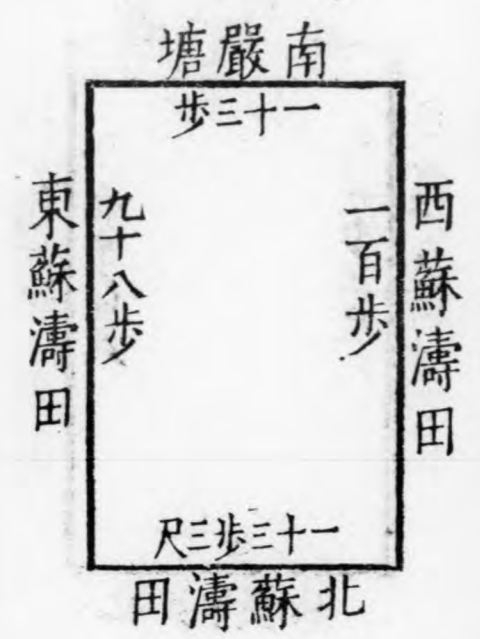 南嚴塘
一十三步
西蘇濤田
一百步
九十八步
東蘇濤田
一十三步三尺
北蘇濤田